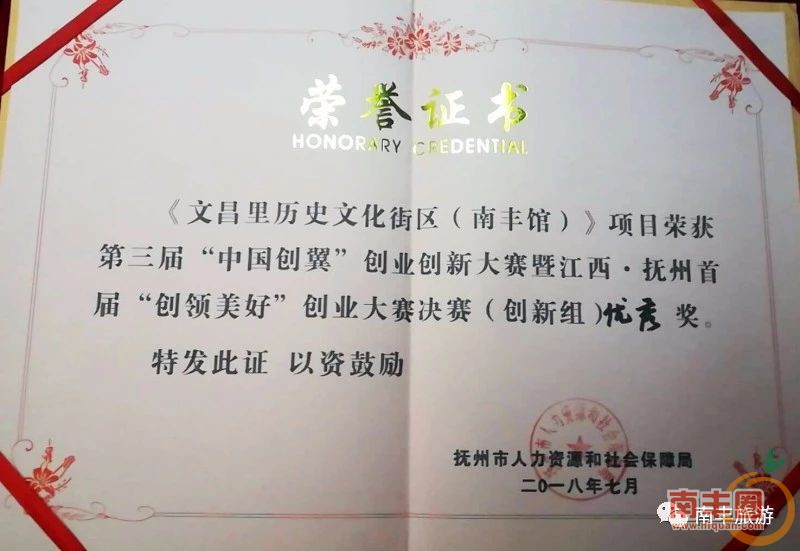 荣誉证书
HONORARY CREDENTIAL
《文昌里历史文化街区（南丰馆）》项目荣获
第三届“中国创翼”创业创新大赛暨江西·抚州首
届“创领美好”创业大赛决赛（创新组)优秀奖。
特发此证 以资鼓励
抚州市人力资源和社会保障局
二0一八年七月
南丰圈
南丰旅游